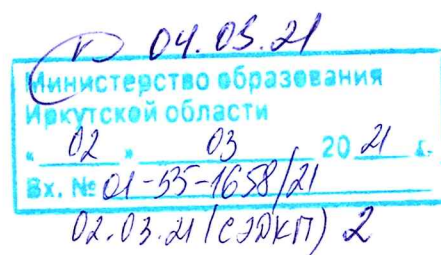 04.03.21
Министерство образования
Иркутской области
« 02 » 03 20 21 г.
Вх. № 01-55-1658/21
02.03.21 (СЭДКП) 2